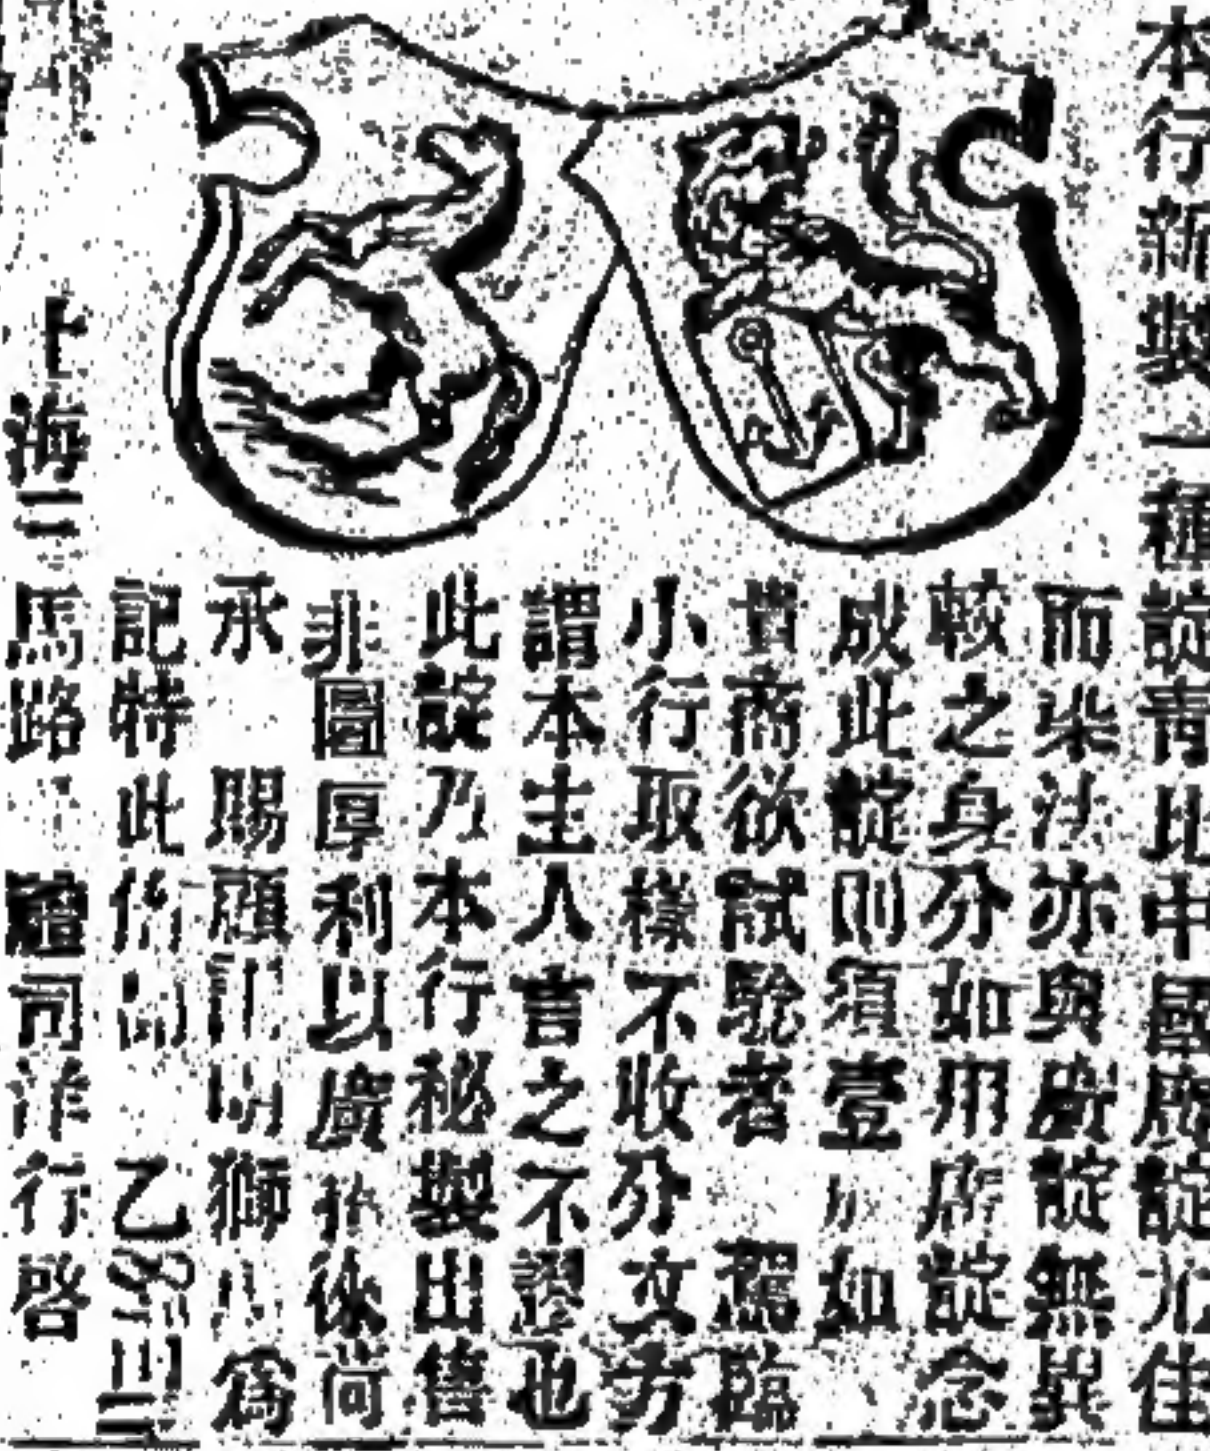 本行新製一種靛青比中國廠靛尤佳
而染法亦與廠靛無異
較之身分如用廠靛念
成此靛則須壹 如
貴商欲試驗者 駕臨
小行取樣不收分文方
謂本主人言之不謬也
此靛乃本行秘製出售
非圖厚利以廣 徠尚
承 賜顧 明獅 爲
記特此佈聞 乙
上海二馬路 禮司洋行啓